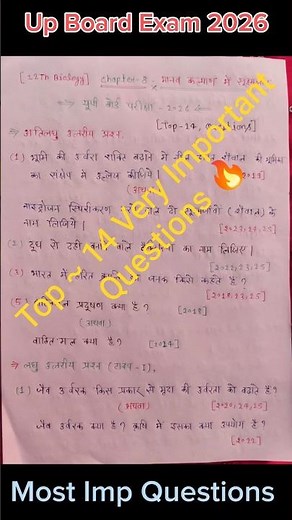 Up Board Exam 2026
[12th Biology] chapter-8. मानव कल्याण में सूक्ष्मजीव
⇒ यूपी बोर्ड परीक्षा -2026
[Top-14, questions]
⇒ अतिलघु उत्तरीय प्रश्न.
(1) भूमि की उर्वरा शक्ति बढ़ाने में नील हरित शैवाल की भूमिका
का संक्षेप में उल्लेख कीजिये|
(अथवा)
नाइट्रोजन स्थिरीकरण शैवाल के
नाम लिखिये|
[2022,23,25]
(2) दूध से दही का नाम लिखिए|
[2022,23,25]
(3) भारत में हरित क्रान्ति का जनक किसे कहते है?
(5) प्रदूषण क्या है?
[2018]
(अथवा)
वाहित मल क्या है?
[2014]
⇒ लघु उत्तरीय प्रश्न
(1) जैव उर्वरक किस प्रकार से मृदा की उर्वरता को बढ़ाते है?
(अथवा)
[2020,24,25]
जैव उर्वरक क्या है? कृषि में इसका क्या उपयोग है?
[2022]
Top - 14 Very Important
Questions 🔥
Most Imp Questions